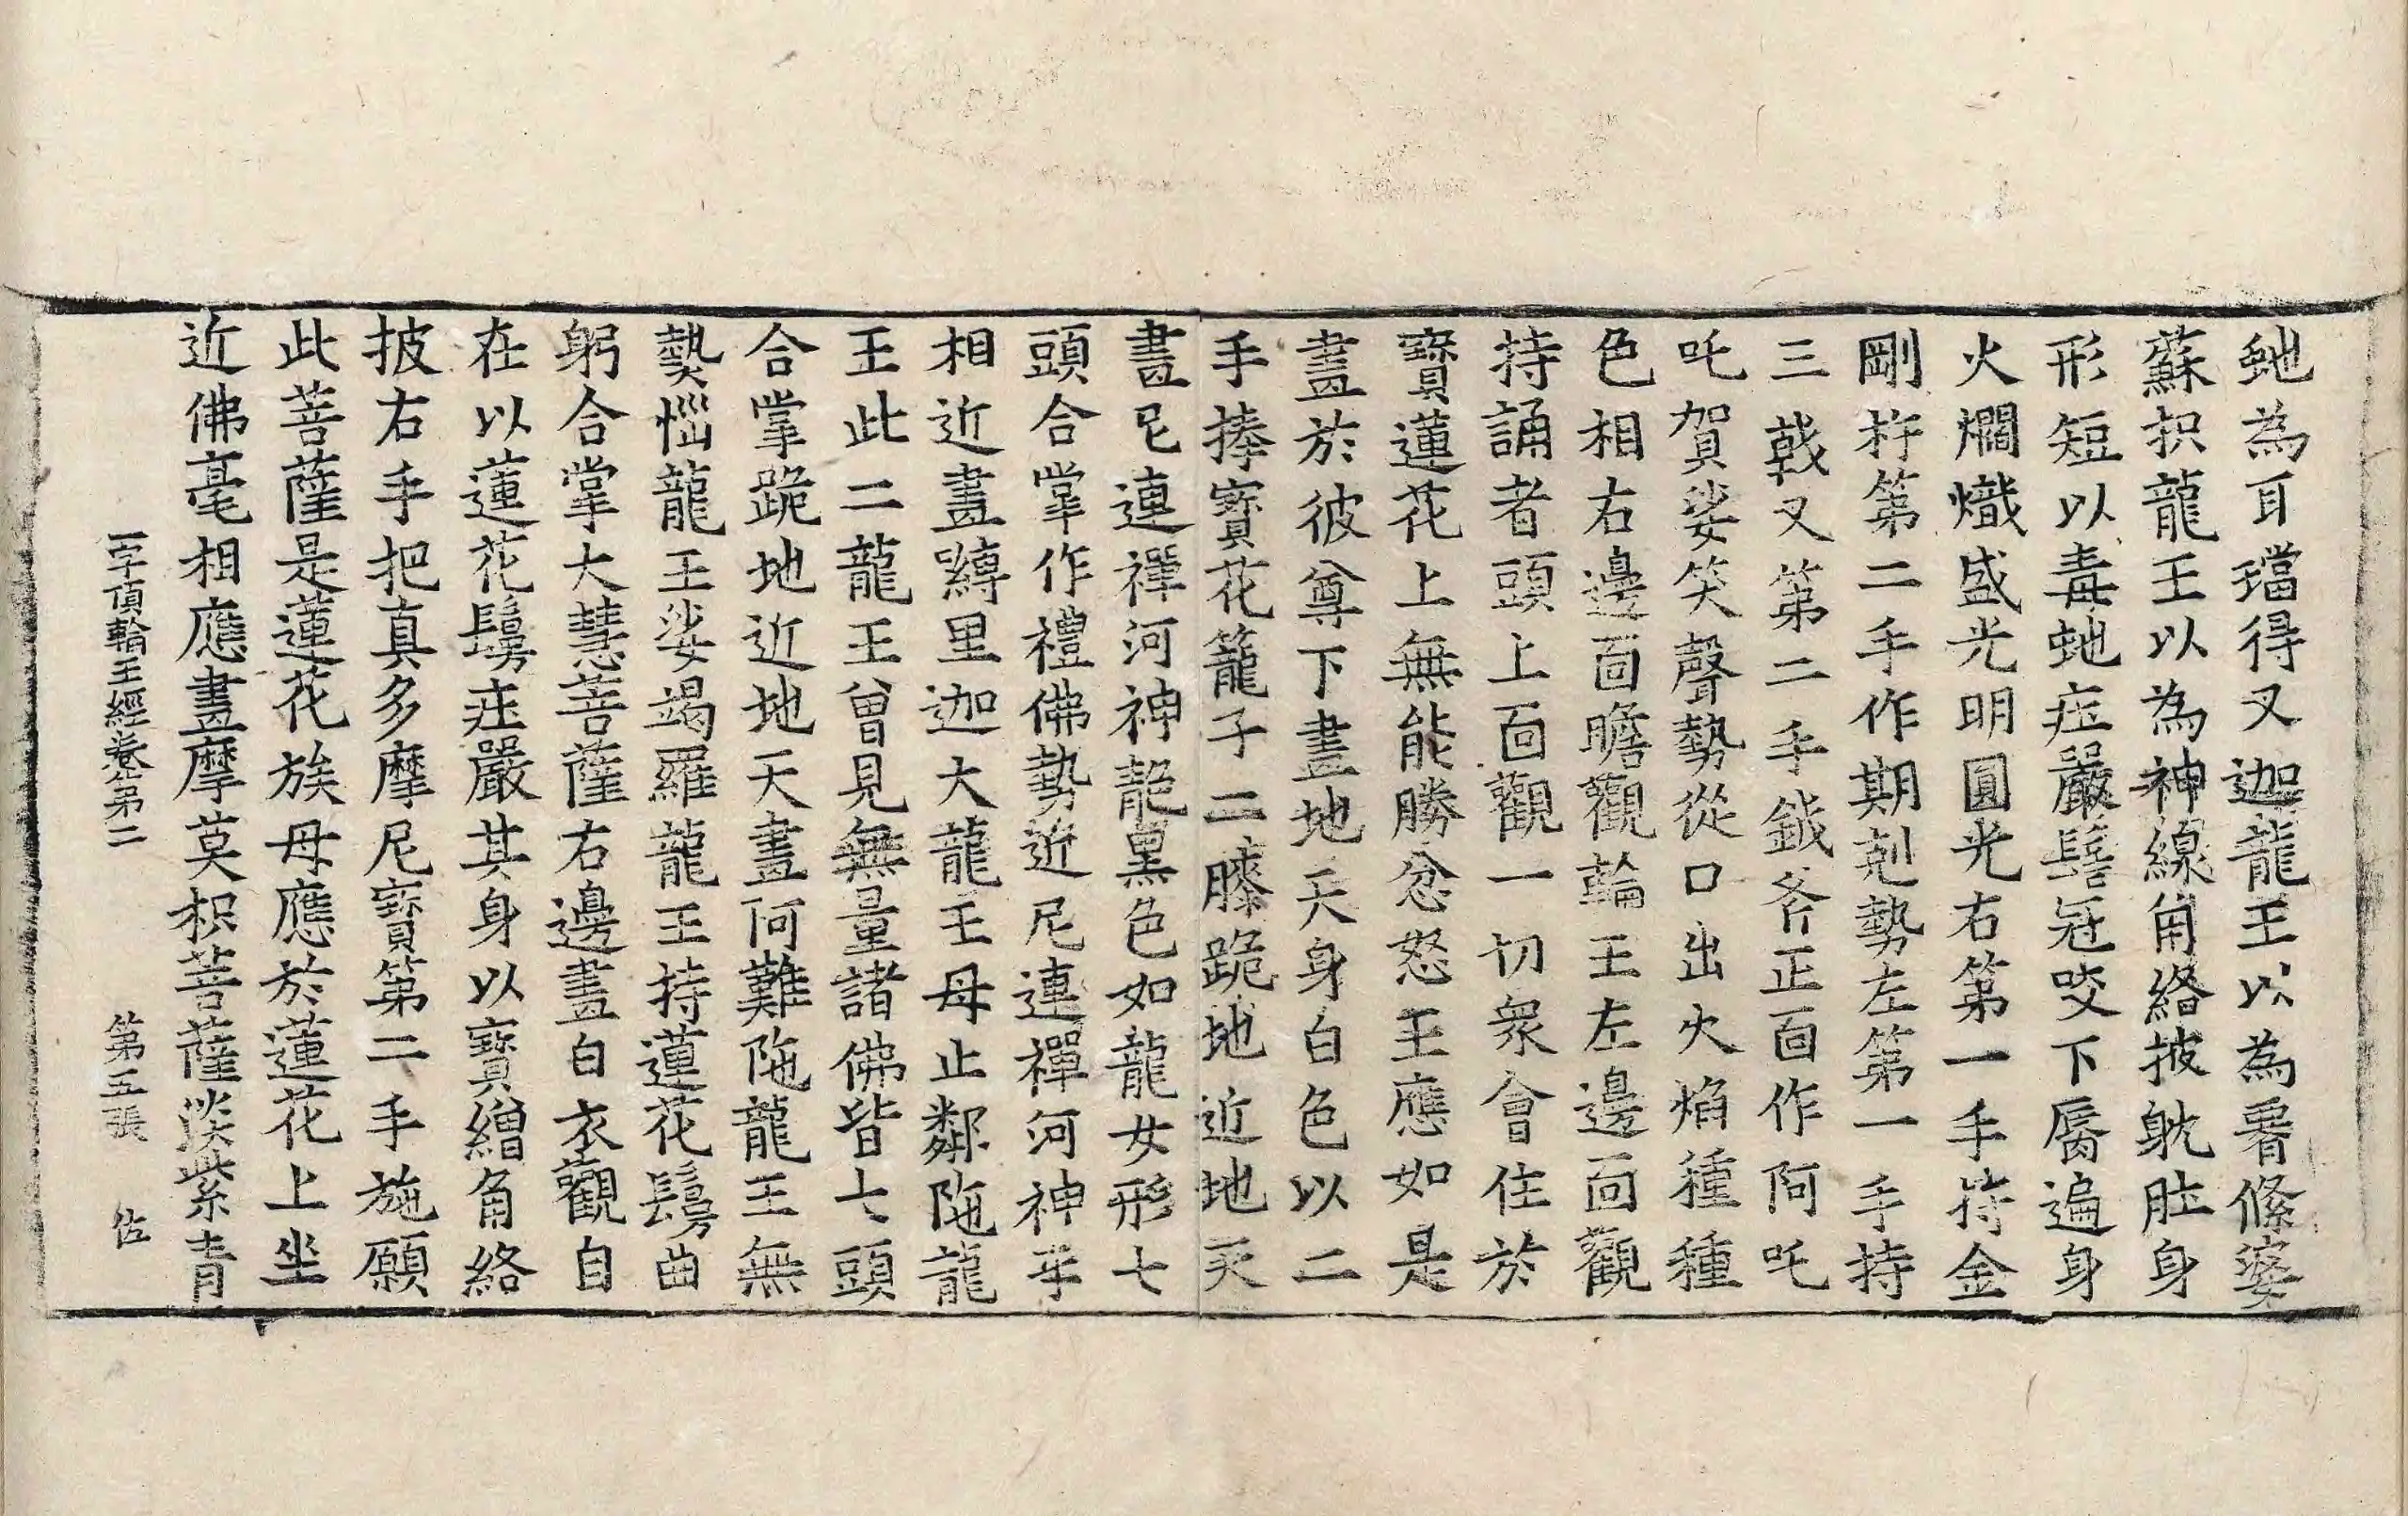 虵為耳璫得叉迦龍王以為脣絛婆
蘇抧龍王以為神線角絡披躭肚身
形短以毒虵庄嚴髻冠咬下脣遍身
火爓熾盛光明圓光右第一手持金
剛杵第二手作期剋勢左第一手持
三戟叉第二手鉞斧正面作阿吒
吒賀娑笑聲勢從口出火焰種種
色相右邊面瞻觀輪王左邊面觀
持誦者頭上面觀一切衆會住於
寶蓮花上無能勝忿怒王應如是
畫於彼尊下畫地天身白色以二
手捧寶花籠子二膝跪地近地天
畫尼連禪河神龍黑色如龍女形七
頭合掌作禮佛勢近尼連禪河神手
相近畫䫂里迦大龍王母止鄰陁龍
王此二龍王曾見無量諸佛皆七頭
合掌跪地近地天畫阿難陁龍王無
𤍠惱龍王娑竭羅龍王持蓮花鬘曲
躬合掌大慧菩薩右邊畫白衣觀自
在以蓮花鬘庄嚴其身以寶繒角絡
披右手把真多摩尼寶第二手施願
此菩薩是蓮花族母應於蓮花上坐
近佛毫相應畫摩莫枳菩薩淡紫青
一字頂輪王經卷第二 第五張 佐